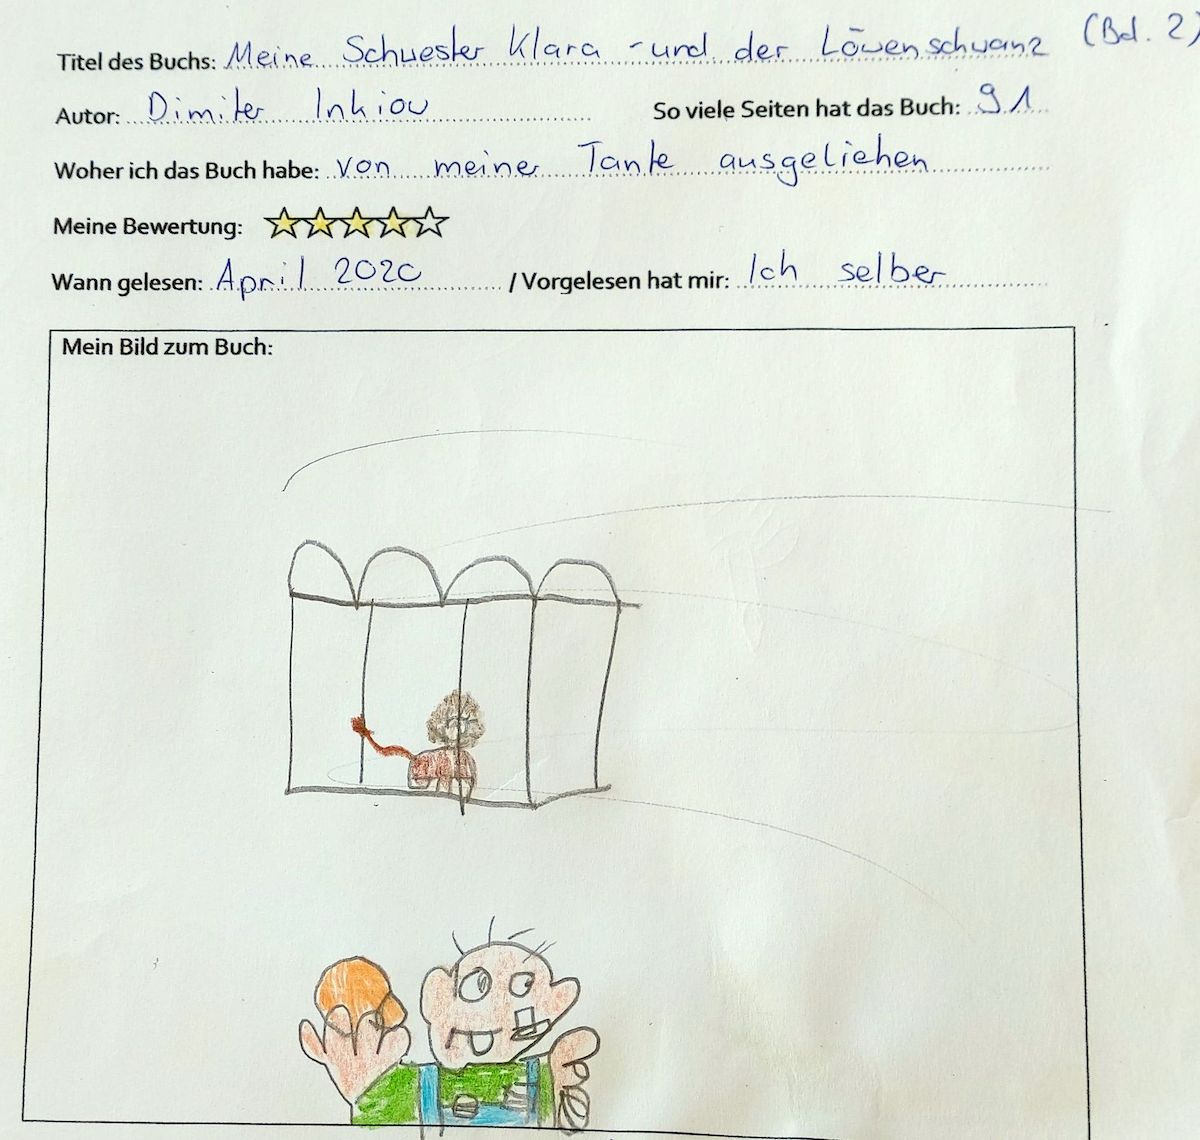 Titel des Buchs: Meine Schwester Klara - und der Löwenschwanz (Bd. 2)
Autor: Dimiter Inkiov So viele Seiten hat das Buch: 91
Woher ich das Buch habe: von meiner Tante ausgeliehen
Meine Bewertung:
Wann gelesen: April 2020 / Vorgelesen hat mir: Ich selber
Mein Bild zum Buch: